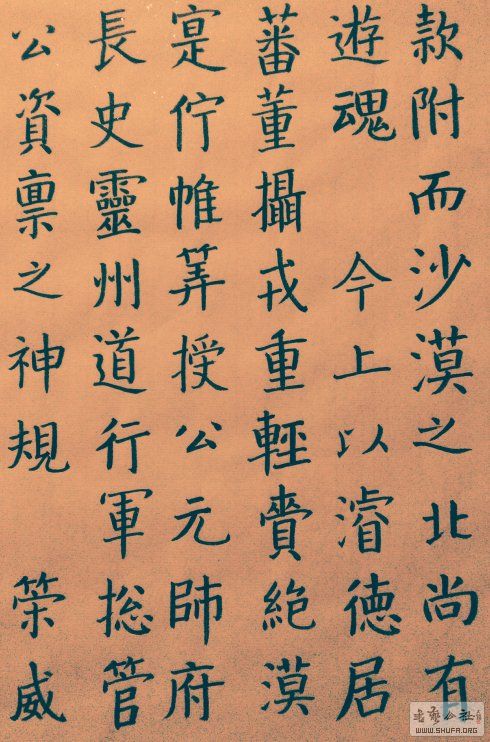 款附而沙漠之北尚有
遊魂 今上以濬德居
蕃董攝戎重輕賫絶漠
寔佇帷筭授公元帥府
長史靈州道行軍摠管
公資禀之神規 策威
书艺公社
WWW.SHUFA.ORG